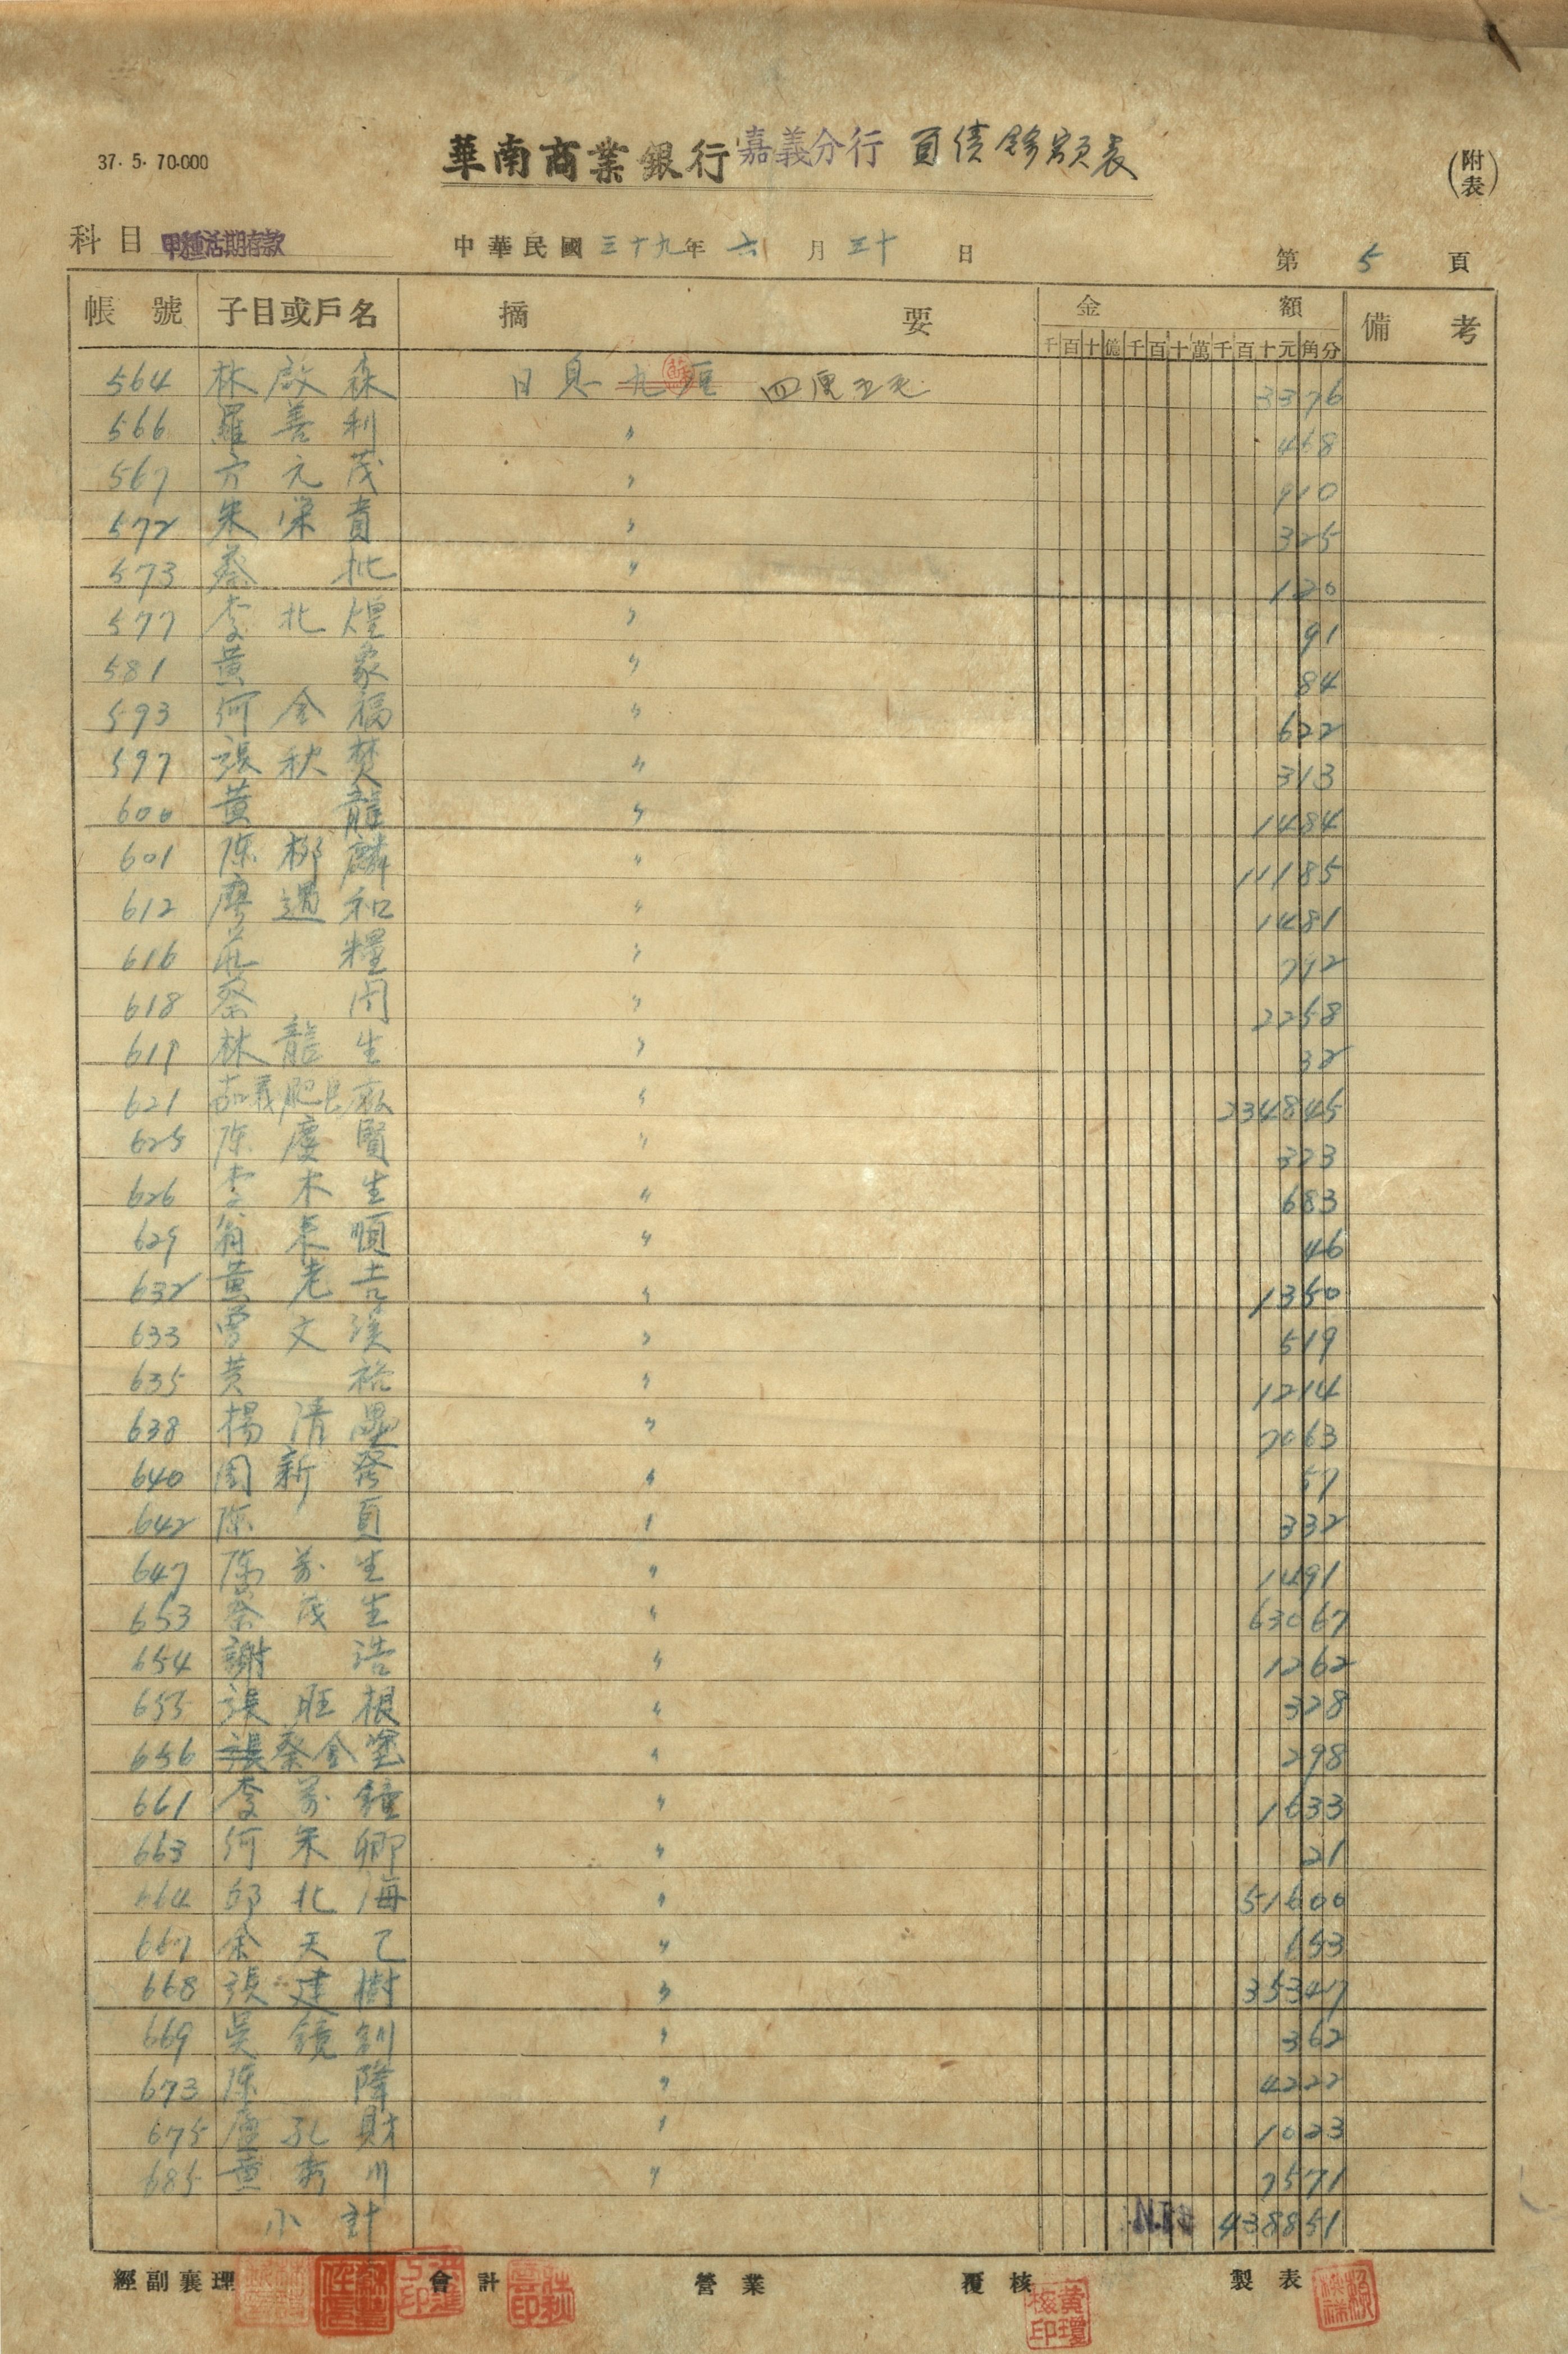 37. 5. 70.000
華南商業銀行嘉義分行 負債餘額表
(附表)
科目 甲種活期存款 中華民國三十九年六月三十日 第5頁
帳號 子目或戶名 摘要 金額 備考
千百十億千百十萬千百十元角分
564 林啟森 日息九厘 四厘五毛 3376
566 羅善利 〃 468
567 方元茂 〃 910
572 朱榮貴 〃 325
573 蔡批 〃 120
577 李北煌 〃 91
581 黃家 〃 84
593 何金福 〃 622
597 張秋焚 〃 313
600 黃龍 〃 1484
601 陳柳麟 〃 11185
612 廖過和 〃 1481
616 莊糧 〃 712
618 蔡閃 〃 2258
619 林龍生 〃 32
621 嘉義肥皂廠 〃 234845
625 陳慶賢 〃 323
626 李木生 〃 683
629 翁東順 〃 46
632 黃老吉 〃 1350
633 曾文溪 〃 519
635 黃裕 〃 1214
638 楊清 〃 7063
640 周新發 〃 57
642 陳頁 〃 332
647 陳芳生 〃 1491
653 蔡茂生 〃 63067
654 謝浩 〃 1262
655 張旺根 〃 328
656 張蔡金塗 〃 298
661 李芳鐘 〃 1633
663 何朱卿 〃 21
664 邱北海 〃 51600
667 余天乙 〃 153
668 張建樹 〃 35347
669 吳鏡釧 〃 362
673 陳降 〃 4222
675 盧孔財 〃 1023
685 黃新川 〃 7571
小計 N.T.$ 438851
經副襄理 會計 營業 覆核 製表
黃瓊梅印